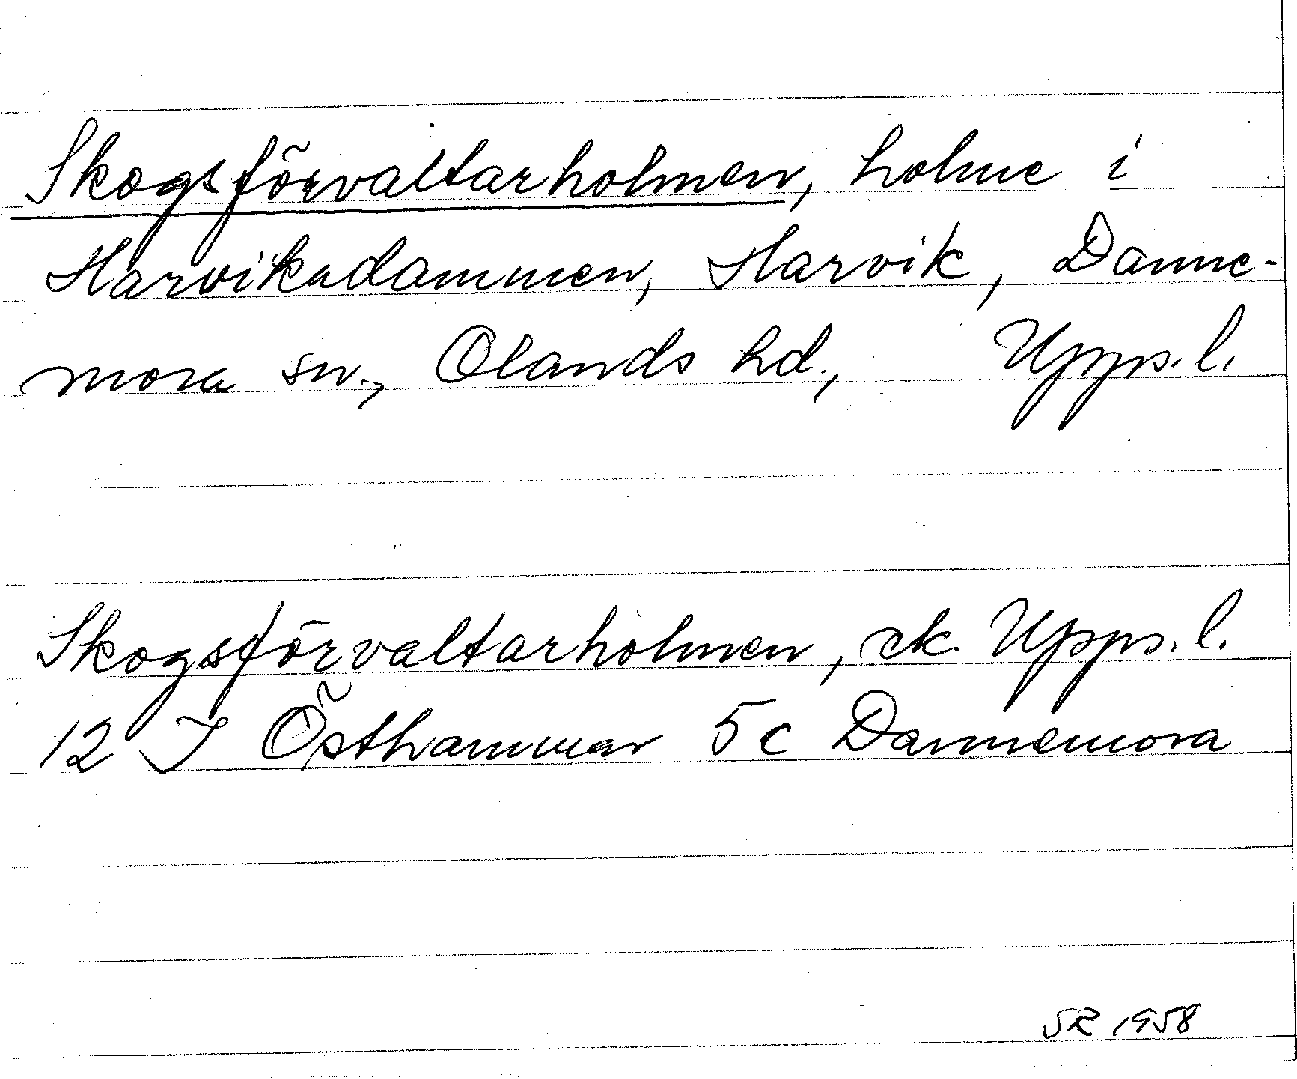 Skogsförvaltarholmen, holme i
Harviksdammen, Harvik, Danne-
mora sn., Olands hd., Upps. l.
Skogsförvaltarholmen, ek. Upps. l.
12 I Östhammar 5c Dannemora
SR 1958